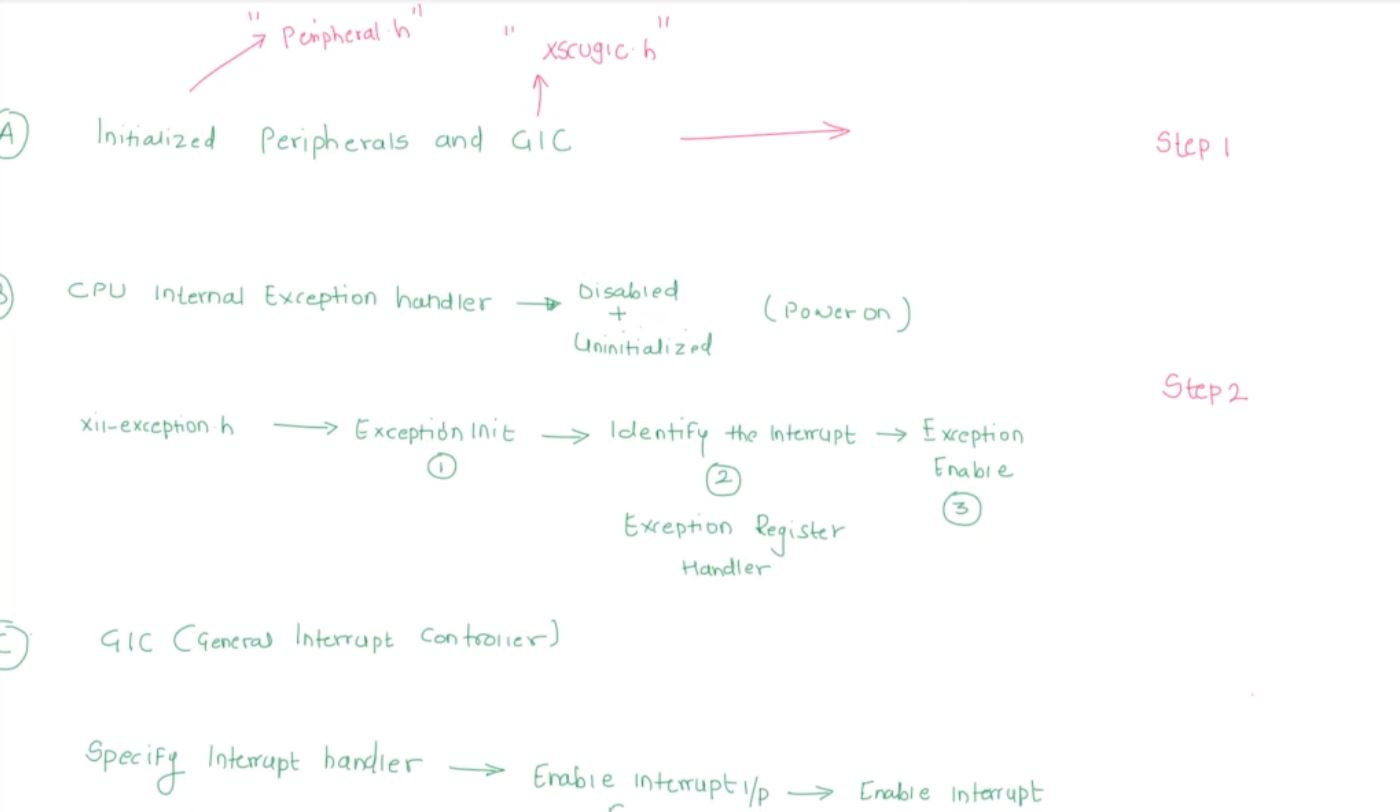 "Peripheral.h"
"xscugic.h"
A Initialized Peripherals and GIC
Step 1
B CPU Internal Exception handler → Disabled (Power on)
+
Uninitialized
Step 2
xil-exception.h → Exception Init → Identify the Interrupt → Exception
Enable
1 2 3
Exception Register
Handler
C GIC (General Interrupt Controller)
Specify Interrupt handler → Enable interrupt i/p → Enable Interrupt